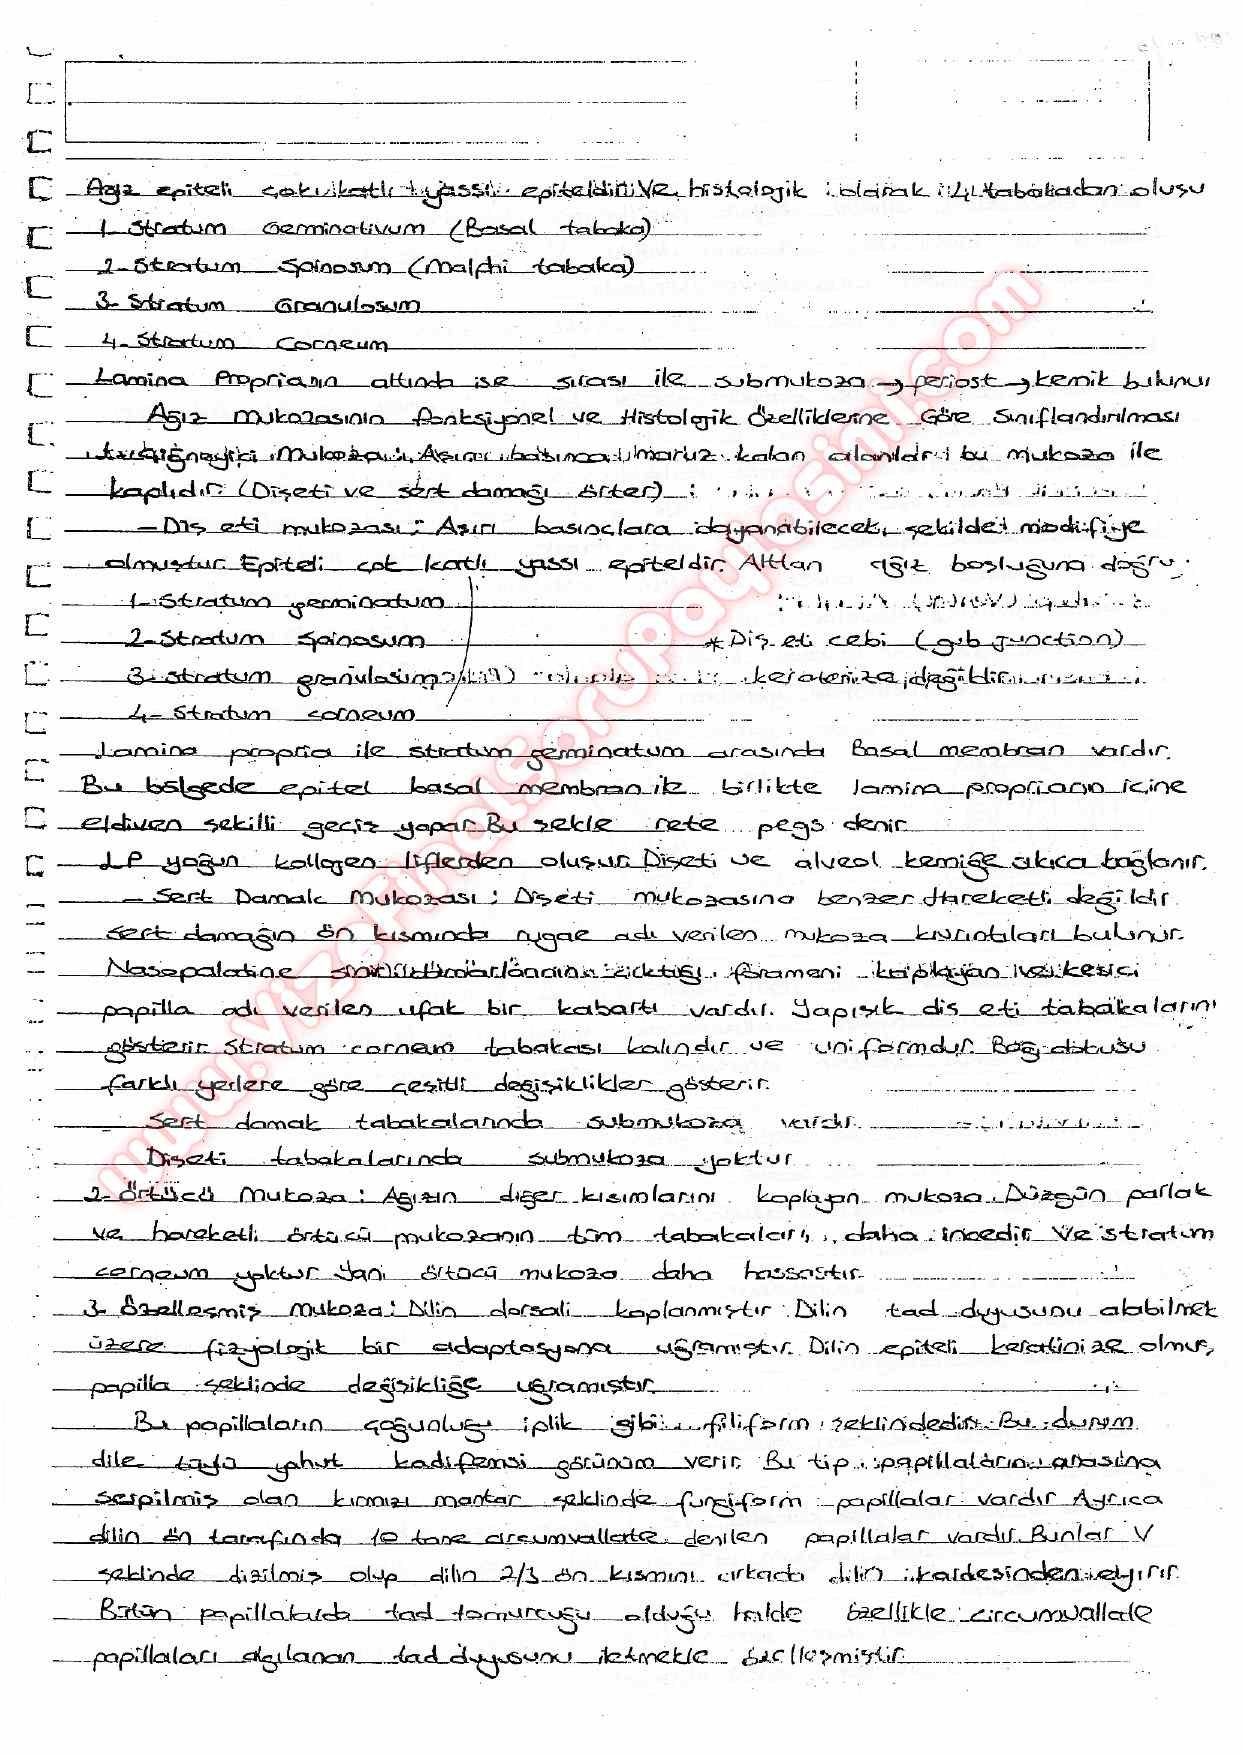 Ağız epiteli çok katlı yassı epiteldir ve histolojik olarak 4 tabakadan oluşu
1. Stratum Germinativum (Basal tabaka)
2- Stratum Spinosum (Malphi tabaka)
3- Stratum Granulosum
4- Stratum Corneum
Lamina Proprianın altında ise sırası ile submukoza → periost → kemik bulunur
Ağız mukozasının fonksiyonel ve Histolojik Özelliklerine Göre Sınıflandırılması
Çiğneyici Mukoza: Aşırı basınca maruz kalan alanlar bu mukoza ile
kaplıdır. (Dişeti ve sert damağı örter)
- Diş eti mukozası: Aşırı basınçlara dayanabilecek şekilde modifiye
olmuştur Epiteli çok katlı yassı epiteldir. Alttan ağız boşluğuna doğru
1- Stratum germinatum
2- Stratum spinosum * Diş eti cebi (gıb junction)
3- stratum granülosum keratinize değildir
4- Stratum corneum
Lamina propria ile stratum germinatum arasında Basal membran vardır.
Bu bölgede epitel basal membran ile birlikte lamina proprianın içine
eldiven şekilli geçiş yapar Bu şekle rete pegs denir
LP yoğun kollagen liflerden oluşur. Dişeti ve alveol kemiğe sıkıca bağlanır.
- Sert Damak Mukozası: Dişeti mukozasına benzer Hareketli değildir
Sert damağın ön kısmında rugae adı verilen mukoza kıvrıntıları bulunur.
Nasopalatine çıktığı forameni kaplayan ve kesici
papilla adı verilen ufak bir kabartı vardır. Yapışık diş eti tabakalarını
gösterir Stratum corneum tabakası kalındır ve uniformdur. Bağ dokusu
farklı yerlere göre çeşitli değişiklikler gösterir.
Sert damak tabakalarında submukoza vardır
Dişeti tabakalarında submukoza yoktur
2- Örtücü Mukoza: Ağızın diğer kısımlarını kaplayan mukoza. Düzgün parlak
ve hareketli örtücü mukozanın tüm tabakaları daha incedir ve stratum
corneum yoktur Yani örtücü mukoza daha hassastır
3- Özelleşmiş mukoza: Dilin dorsali kaplanmıştır Dilin tad duygusunu alabilmek
üzere fizyolojik bir adaptasyona uğramıştır. Dilin epiteli keratinize olmuş,
papilla şeklinde değişikliğe uğramıştır.
Bu papillaların çoğunluğu iplik gibi filiform şeklindedir. Bu durum
dile yahut kadifemsi görünüm verir. Bu tip papillaların arasına
serpilmiş olan kırmızı mantar şeklinde fungiform papillalar vardır Ayrıca
dilin ön tarafında 10 tane circumvallate denilen papillalar vardır. Bunlar V
şeklinde dizilmiş olup dilin 2/3 ön kısmını arkada dilin kardeşinden ayırır
Bütün papillalarda tad tomurcuğu olduğu halde özellikle circumvallate
papillaları algılanan tad duygusunu iletmekle özelleşmiştir
www.vizefinalsorupaylasimi.com